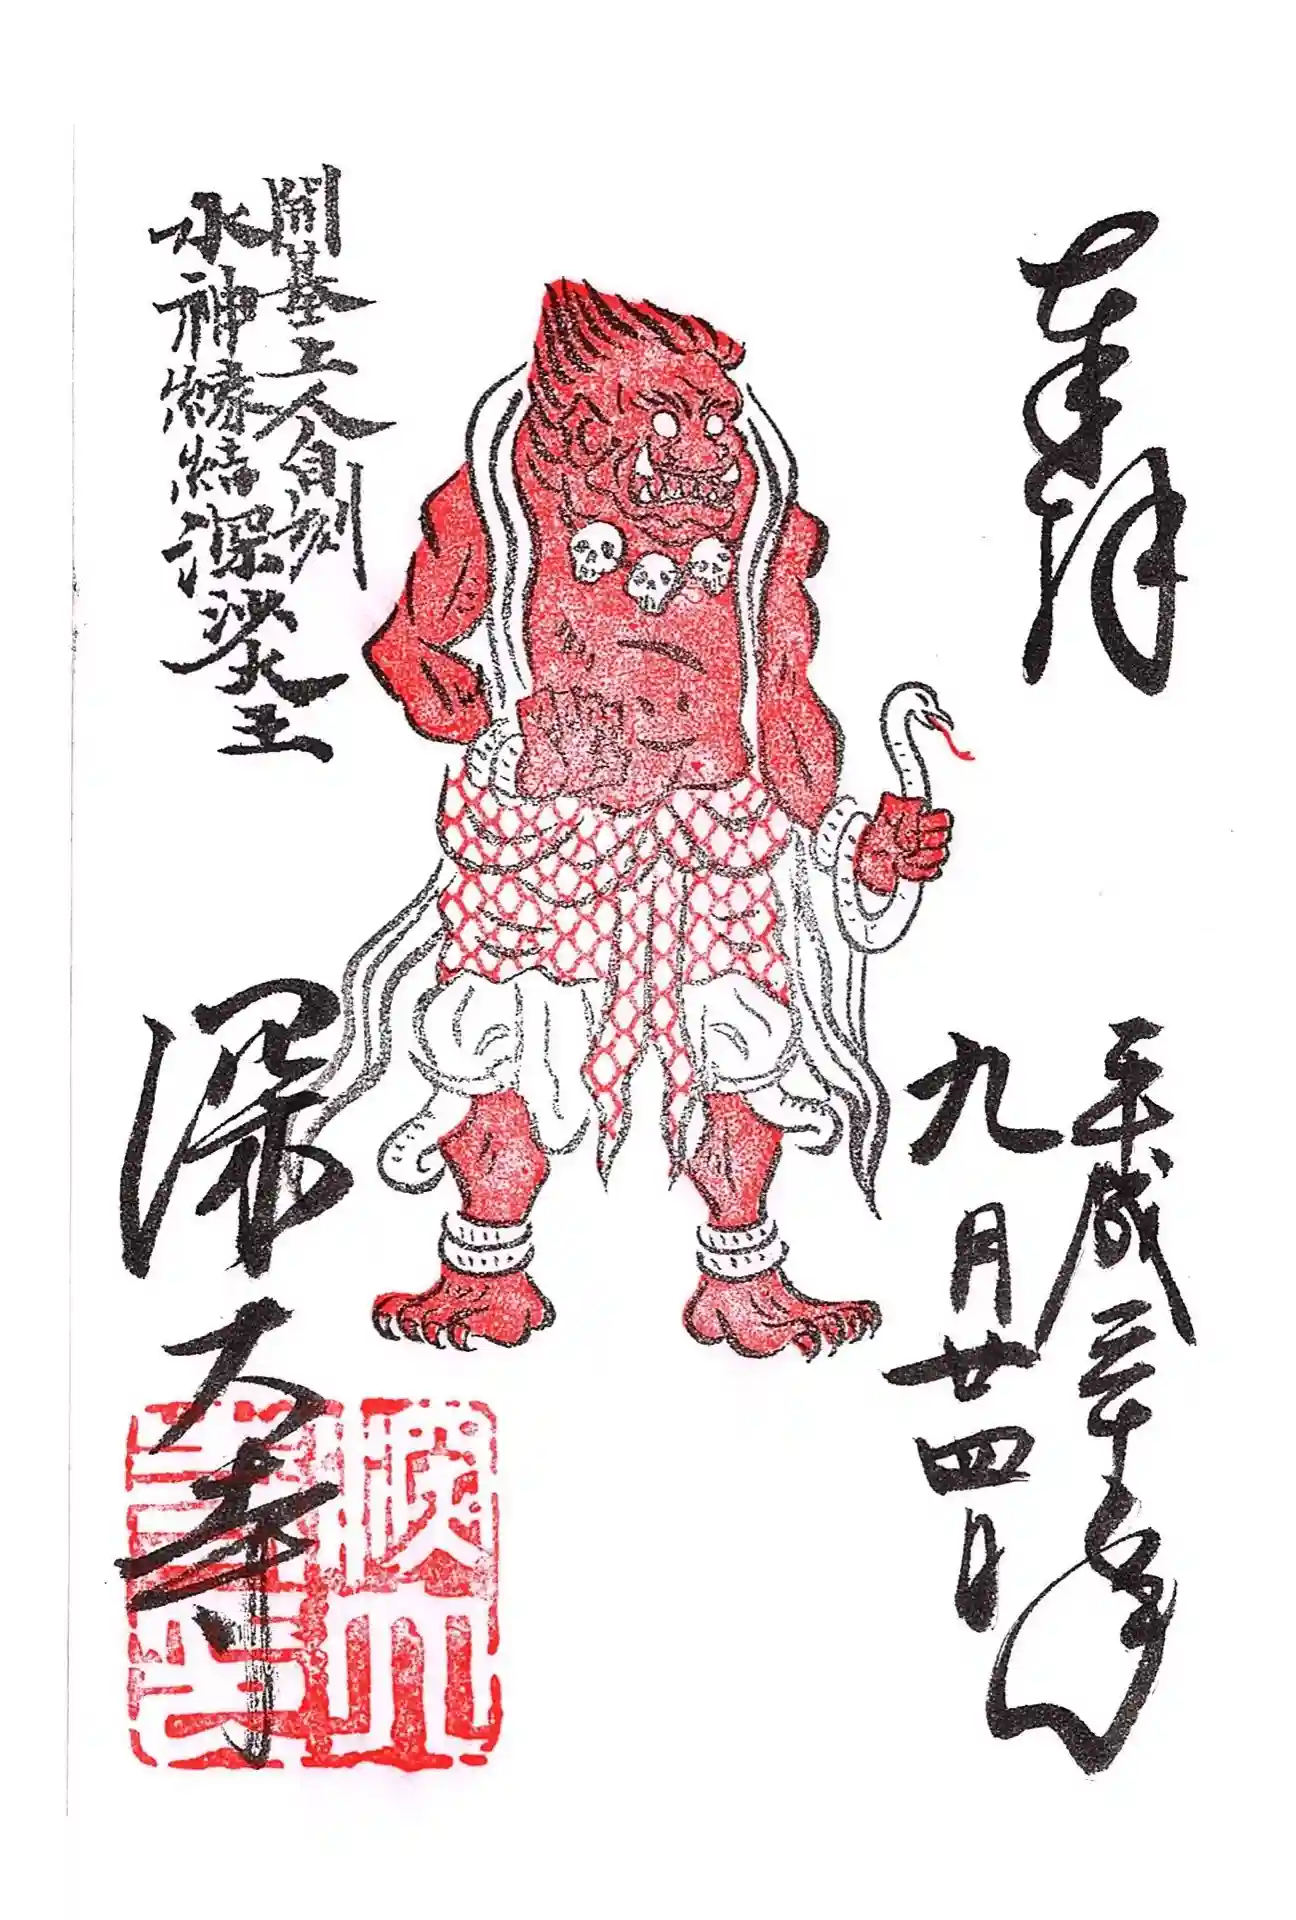 奉拝
平成三十年
九月廿四日
開基上人自刻
水神縁結深沙大王
深大寺
深大寺